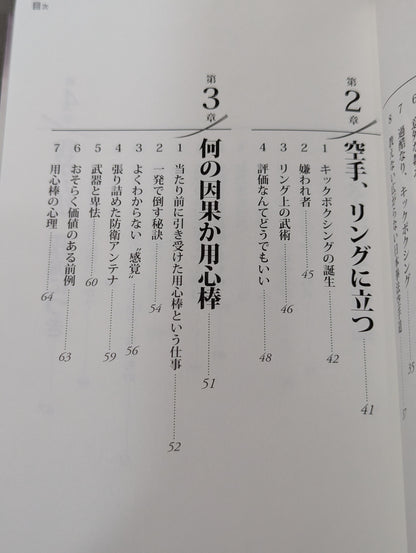 目次
過酷なり、キックボクシング
35
37
第2章
空手、リングに立つ
41
1 キックボクシングの誕生 42
2 嫌われ者 45
3 リング上の武術 46
4 評価なんてどうでもいい 48
第3章
何の因果か用心棒
51
1 当たり前に引き受けた用心棒という仕事 52
2 一発で倒す秘訣 54
3 よくわからない“感覚” 56
4 張り詰めた防衛アンテナ 59
5 武器と卑怯 60
6 おそらく価値のある前例 63
7 用心棒の心理 64